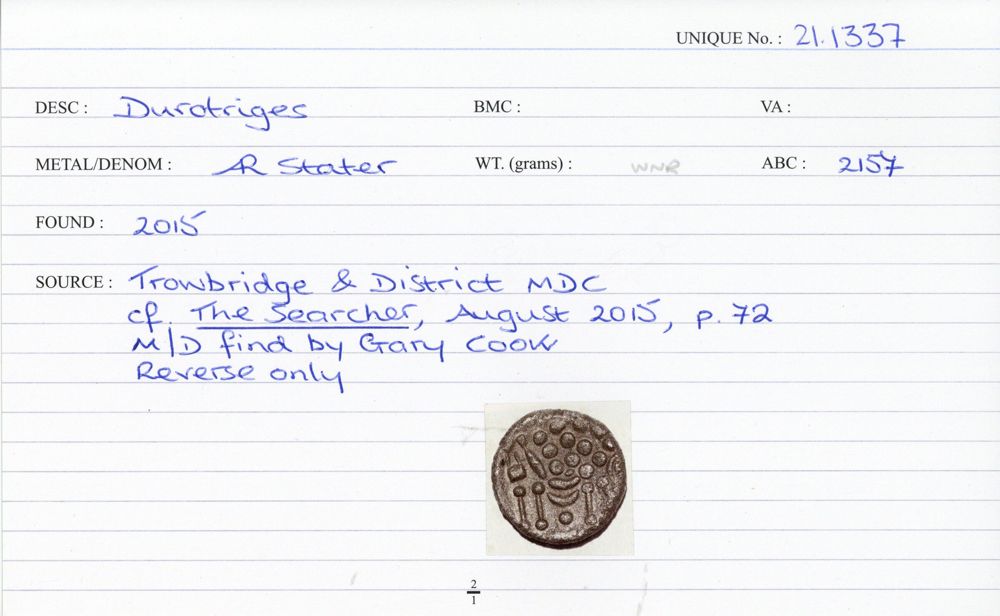 UNIQUE No. : 21.1337
DESC : Durotriges BMC : VA :
METAL/DENOM : AR Stater WT. (grams) : WNR ABC : 2157
FOUND : 2015
SOURCE : Trowbridge & District MDC
cf. The Searcher, August 2015, p. 72
M/D find by Gary Cook
Reverse only
2
1